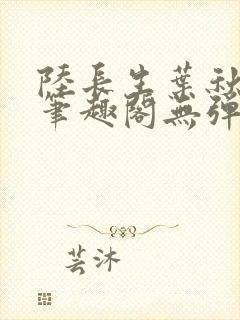 陸長生葉秋
筆趣閣無彈
芸沐